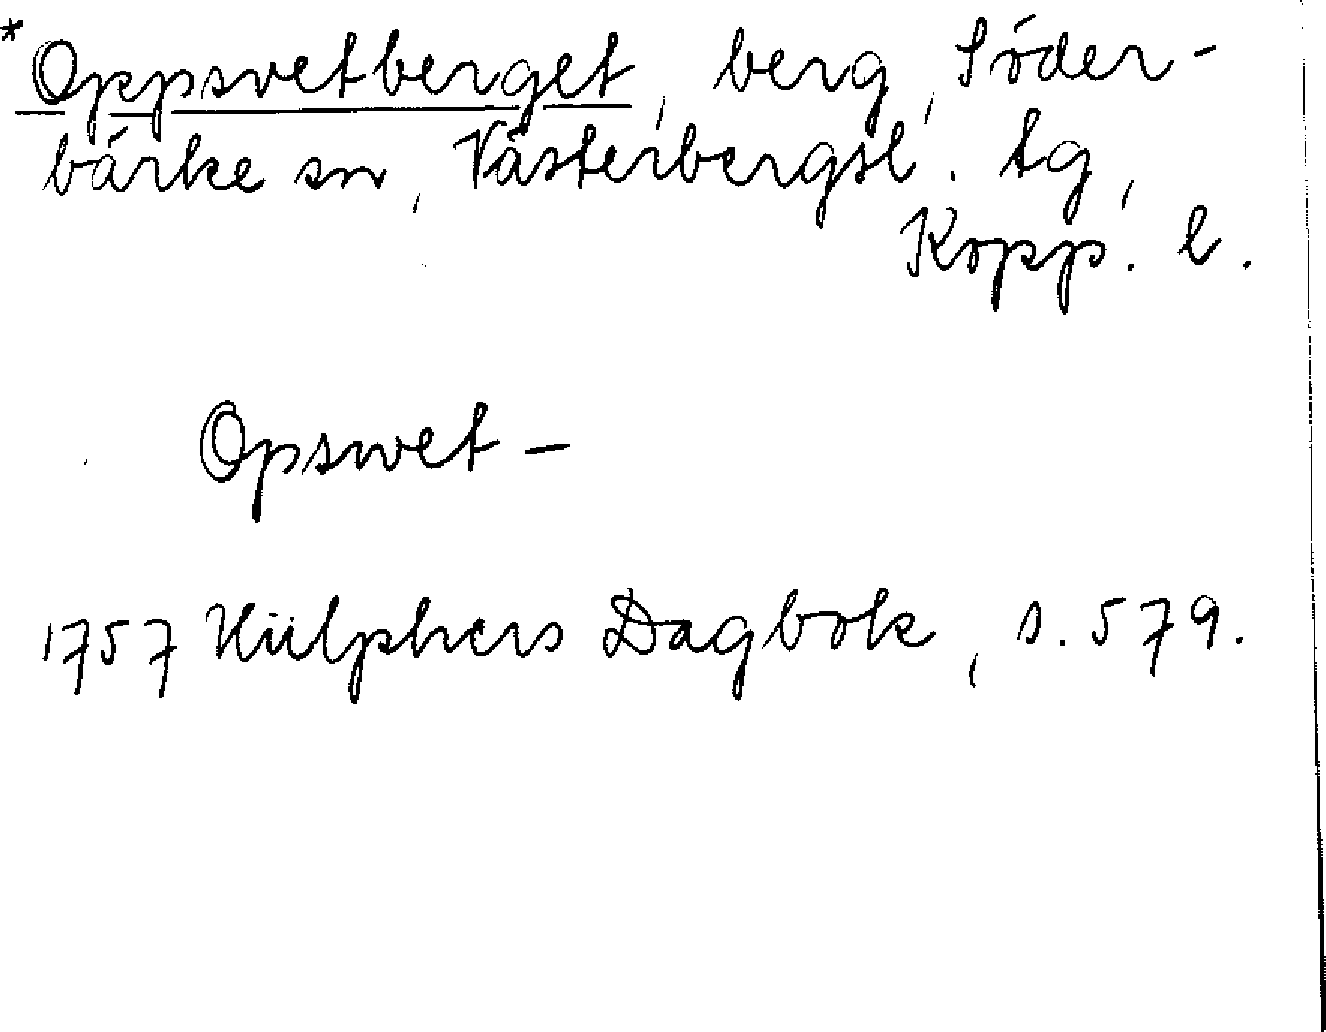 *Oppsvetberget, berg, Söder-
bärke sn, Västerbergsl. tg,
Kopp. l.
Opswet-
1757 Hülphers Dagbok, s. 579.